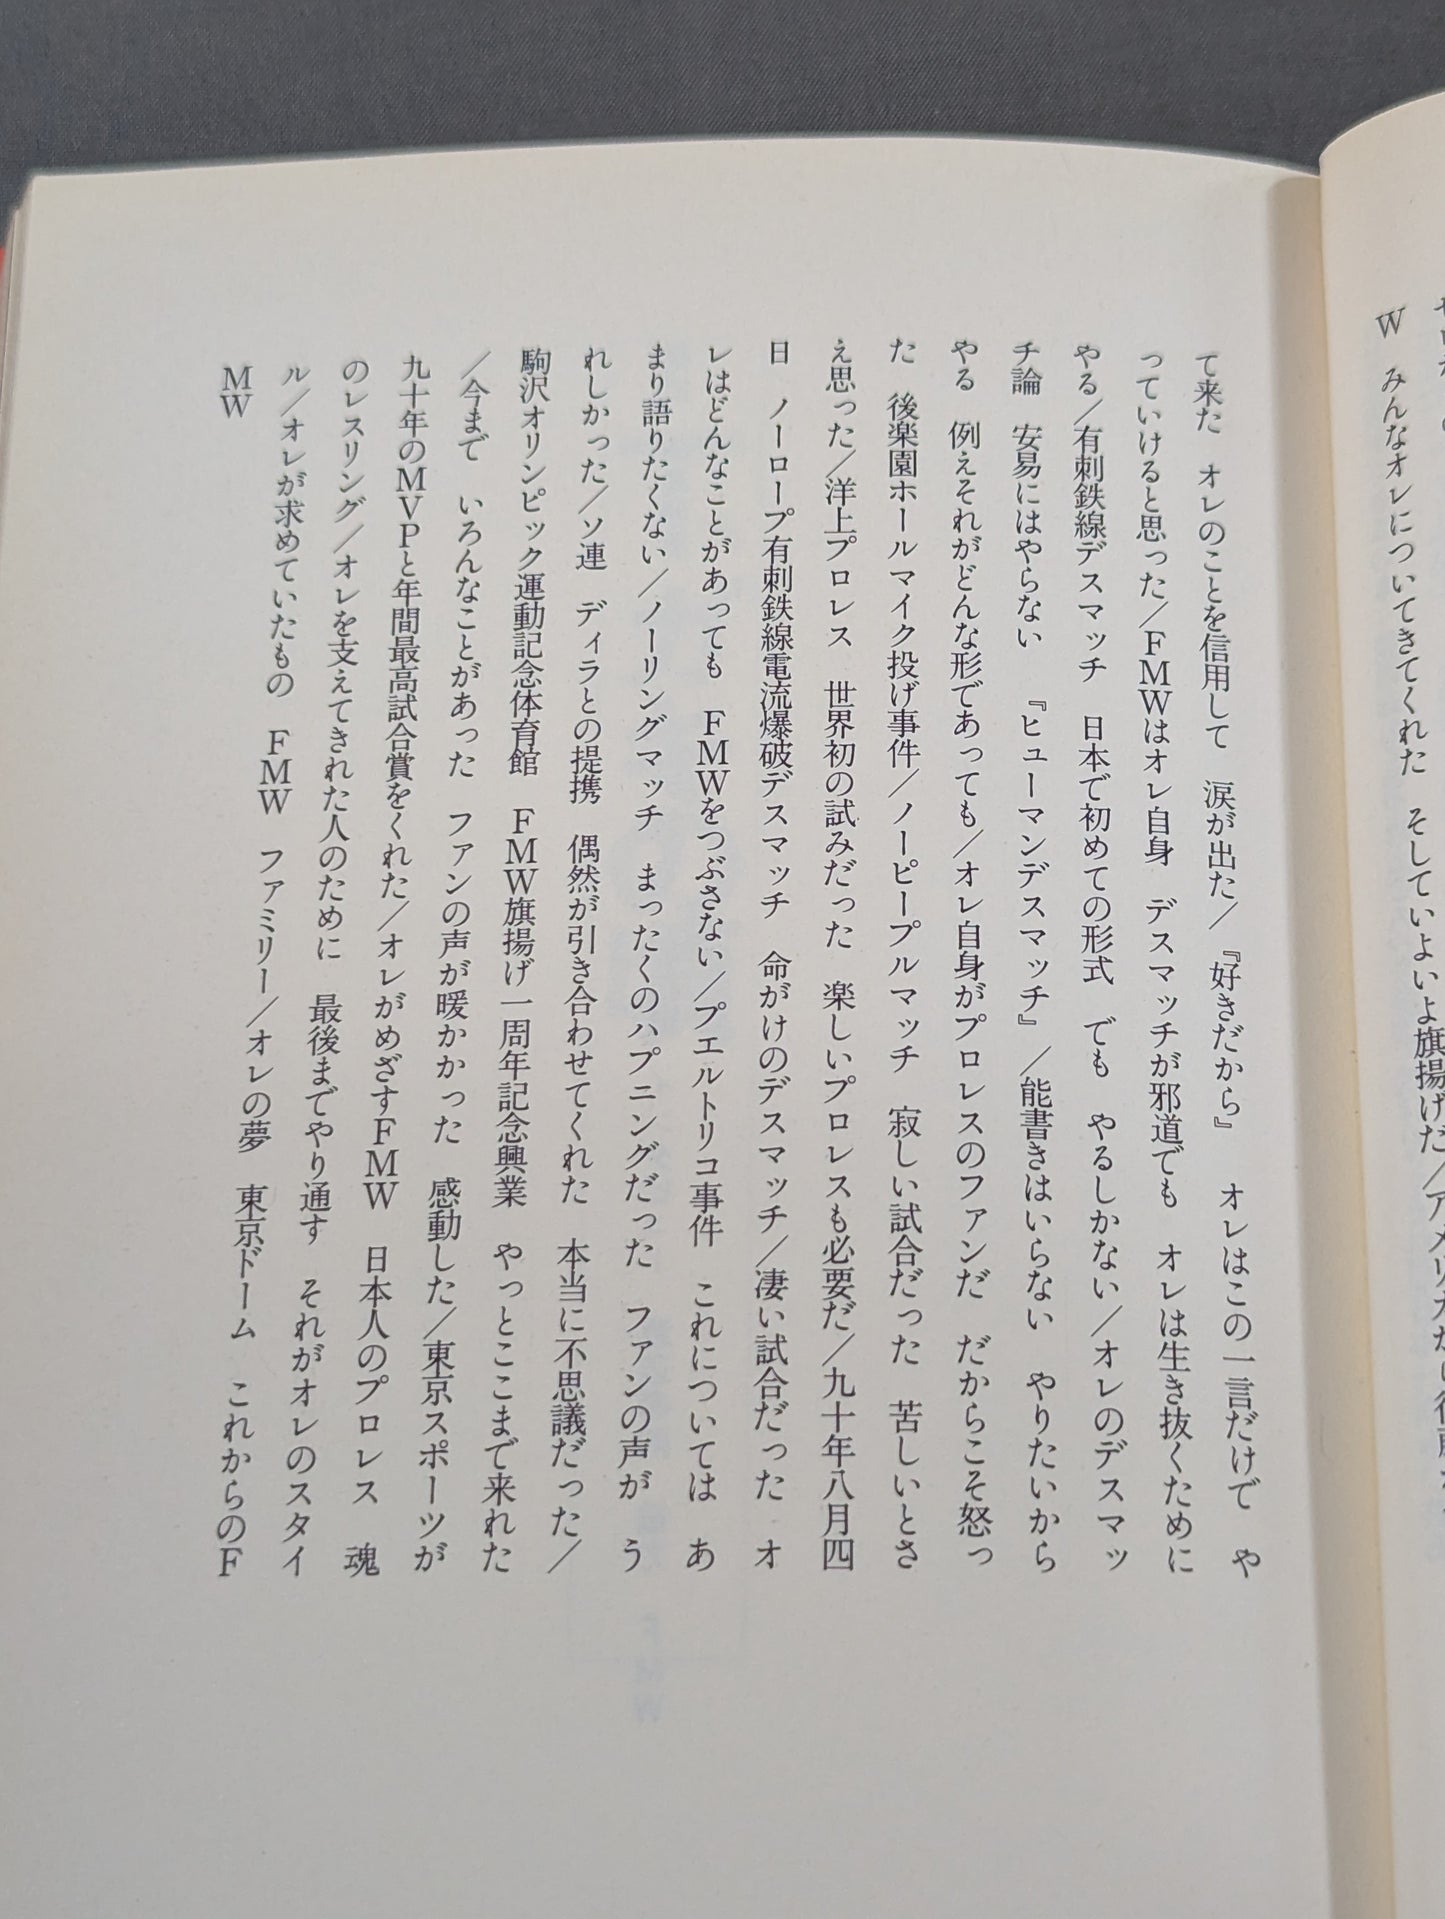 W　みんなオレについてきてくれた　そしていよいよ旗揚げだ／アメリカ
て来た　オレのことを信用して　涙が出た／『好きだから』　オレはこの一言だけで　や
っていけると思った／FMWはオレ自身　デスマッチが邪道でも　オレは生き抜くために
やる／有刺鉄線デスマッチ　日本で初めての形式　でも　やるしかない／オレのデスマッ
チ論　安易にはやらない　『ヒューマンデスマッチ』／能書きはいらない　やりたいから
やる　例えそれがどんな形であっても／オレ自身がプロレスのファンだ　だからこそ怒っ
た　後楽園ホールマイク投げ事件／ノーピープルマッチ　寂しい試合だった　苦しいとさ
え思った／洋上プロレス　世界初の試みだった　楽しいプロレスも必要だ／九十年八月四
日　ノーロープ有刺鉄線電流爆破デスマッチ　命がけのデスマッチ／凄い試合だった　オ
レはどんなことがあっても　FMWをつぶさない／プエルトリコ事件　これについては　あ
まり語りたくない／ノーリングマッチ　まったくのハプニングだった　ファンの声が　う
れしかった／ソ連　ディラとの提携　偶然が引き合わせてくれた　本当に不思議だった／
駒沢オリンピック運動記念体育館　FMW旗揚げ一周年記念興業　やっとここまで来れた
／今まで　いろんなことがあった　ファンの声が暖かかった　感動した／東京スポーツが
九十年のMVPと年間最高試合賞をくれた／オレがめざすFMW　日本人のプロレス　魂
のレスリング／オレを支えてきれた人のために　最後までやり通す　それがオレのスタイ
ル／オレが求めていたもの　FMW　ファミリー／オレの夢　東京ドーム　これからのF
MW